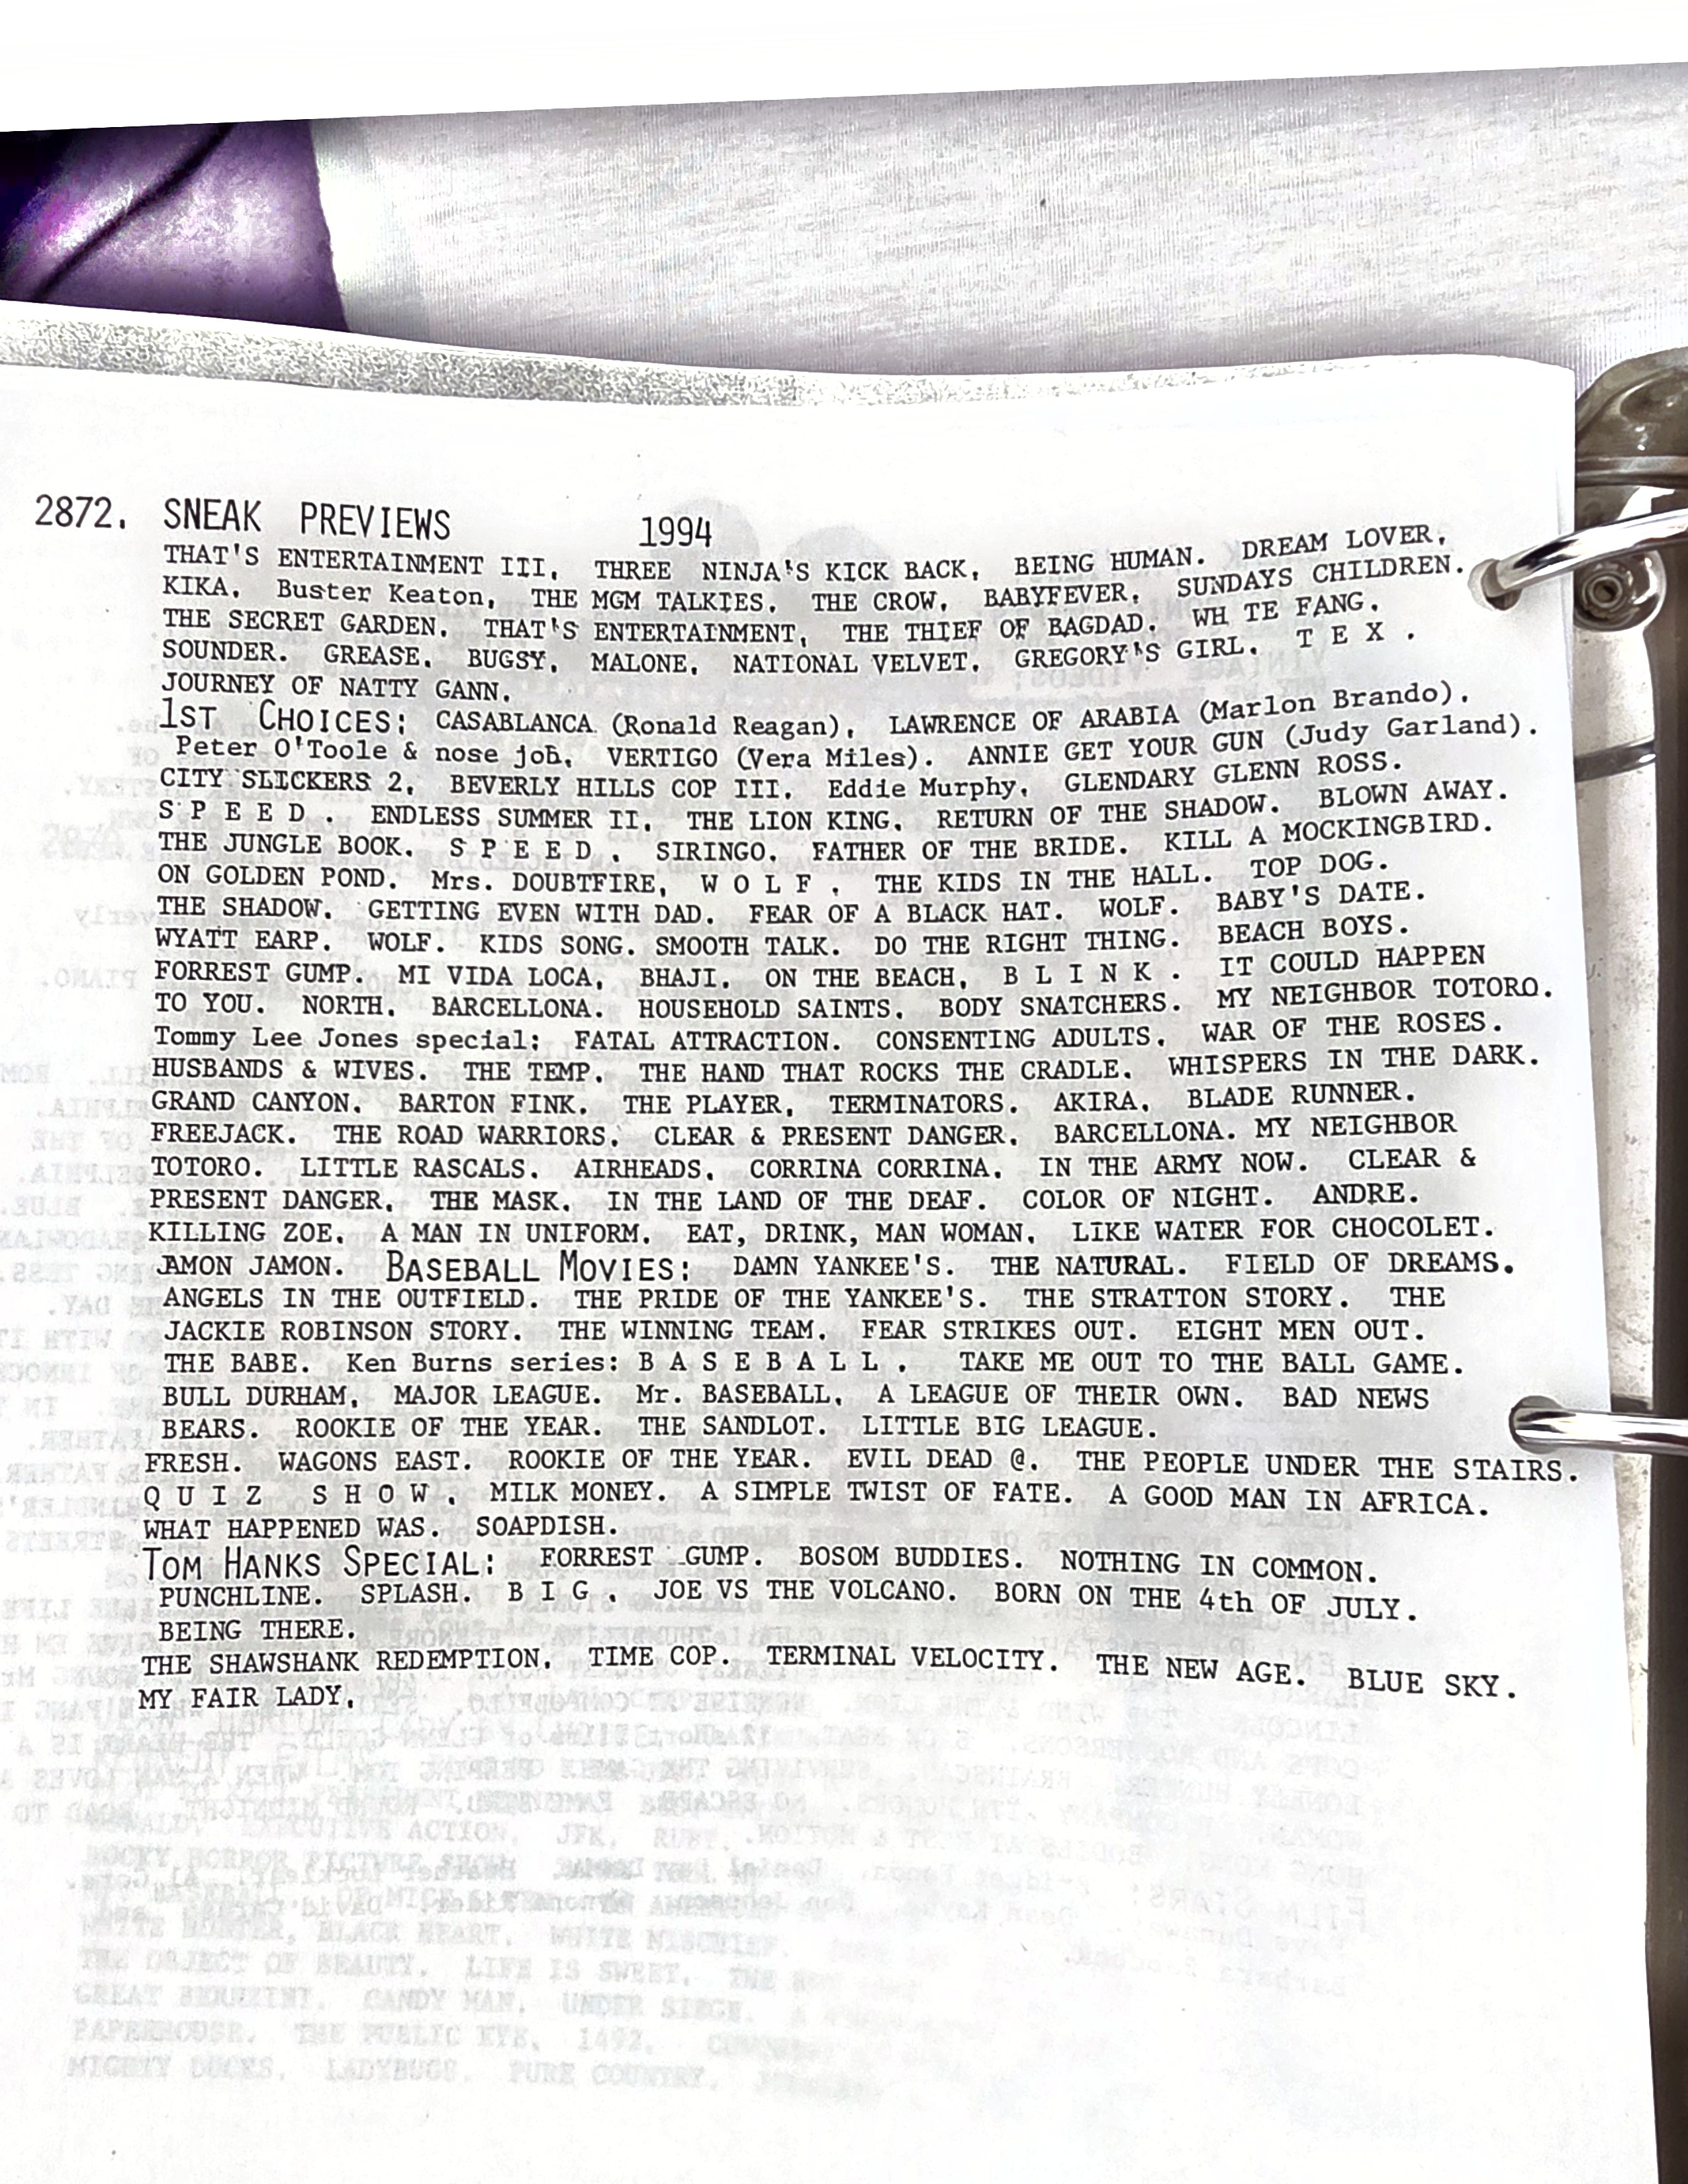 2872. SNEAK PREVIEWS 1994
THAT'S ENTERTAINMENT III. THREE NINJA'S KICK BACK. BEING HUMAN. DREAM LOVER.
KIKA. Buster Keaton, THE MGM TALKIES. THE CROW. BABYFEVER. SUNDAYS CHILDREN.
THE SECRET GARDEN. THAT'S ENTERTAINMENT, THE THIEF OF BAGDAD. WH TE FANG.
SOUNDER. GREASE. BUGSY. MALONE. NATIONAL VELVET. GREGORY'S GIRL. T E X .
JOURNEY OF NATTY GANN.
1ST CHOICES: CASABLANCA (Ronald Reagan). LAWRENCE OF ARABIA (Marlon Brando).
Peter O'Toole & nose job. VERTIGO (Vera Miles). ANNIE GET YOUR GUN (Judy Garland).
CITY SLICKERS 2. BEVERLY HILLS COP III. Eddie Murphy. GLENDARY GLENN ROSS.
S P E E D . ENDLESS SUMMER II. THE LION KING. RETURN OF THE SHADOW. BLOWN AWAY.
THE JUNGLE BOOK. S P E E D . SIRINGO. FATHER OF THE BRIDE. KILL A MOCKINGBIRD.
ON GOLDEN POND. Mrs. DOUBTFIRE, W O L F . THE KIDS IN THE HALL. TOP DOG.
THE SHADOW. GETTING EVEN WITH DAD. FEAR OF A BLACK HAT. WOLF. BABY'S DATE.
WYATT EARP. WOLF. KIDS SONG. SMOOTH TALK. DO THE RIGHT THING. BEACH BOYS.
FORREST GUMP. MI VIDA LOCA. BHAJI. ON THE BEACH. B L I N K . IT COULD HAPPEN
TO YOU. NORTH. BARCELLONA. HOUSEHOLD SAINTS. BODY SNATCHERS. MY NEIGHBOR TOTORO.
Tommy Lee Jones special: FATAL ATTRACTION. CONSENTING ADULTS. WAR OF THE ROSES.
HUSBANDS & WIVES. THE TEMP. THE HAND THAT ROCKS THE CRADLE. WHISPERS IN THE DARK.
GRAND CANYON. BARTON FINK. THE PLAYER. TERMINATORS. AKIRA. BLADE RUNNER.
FREEJACK. THE ROAD WARRIORS. CLEAR & PRESENT DANGER. BARCELLONA. MY NEIGHBOR
TOTORO. LITTLE RASCALS. AIRHEADS. CORRINA CORRINA. IN THE ARMY NOW. CLEAR &
PRESENT DANGER. THE MASK. IN THE LAND OF THE DEAF. COLOR OF NIGHT. ANDRE.
KILLING ZOE. A MAN IN UNIFORM. EAT, DRINK, MAN WOMAN. LIKE WATER FOR CHOCOLET.
JAMON JAMON. BASEBALL MOVIES: DAMN YANKEE'S. THE NATURAL. FIELD OF DREAMS.
ANGELS IN THE OUTFIELD. THE PRIDE OF THE YANKEE'S. THE STRATTON STORY. THE
JACKIE ROBINSON STORY. THE WINNING TEAM. FEAR STRIKES OUT. EIGHT MEN OUT.
THE BABE. Ken Burns series: B A S E B A L L . TAKE ME OUT TO THE BALL GAME.
BULL DURHAM. MAJOR LEAGUE. Mr. BASEBALL. A LEAGUE OF THEIR OWN. BAD NEWS
BEARS. ROOKIE OF THE YEAR. THE SANDLOT. LITTLE BIG LEAGUE.
FRESH. WAGONS EAST. ROOKIE OF THE YEAR. EVIL DEAD @. THE PEOPLE UNDER THE STAIRS.
Q U I Z S H O W . MILK MONEY. A SIMPLE TWIST OF FATE. A GOOD MAN IN AFRICA.
WHAT HAPPENED WAS. SOAPDISH.
TOM HANKS SPECIAL: FORREST GUMP. BOSOM BUDDIES. NOTHING IN COMMON.
PUNCHLINE. SPLASH. B I G . JOE VS THE VOLCANO. BORN ON THE 4th OF JULY.
BEING THERE.
THE SHAWSHANK REDEMPTION. TIME COP. TERMINAL VELOCITY. THE NEW AGE. BLUE SKY.
MY FAIR LADY.